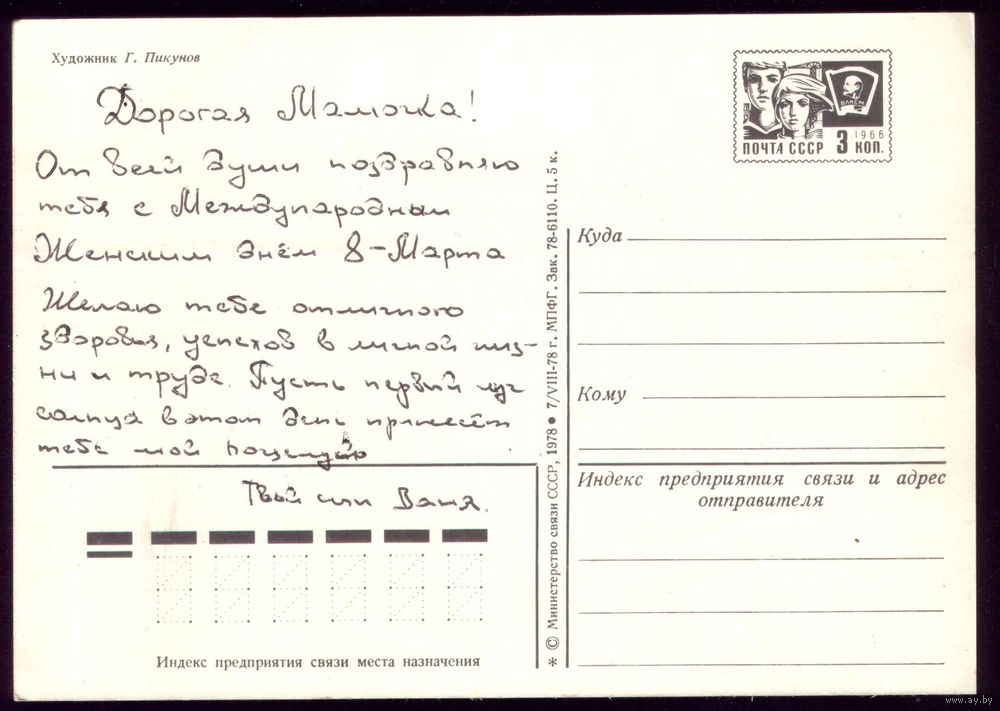 Художник Г. Пикунов
Дорогая Мамочка!
От всей души поздравляю
тебя с Международным
Женским днём 8-Марта
Желаю тебе отличного
здоровья, успехов в личной жиз-
ни и труде. Пусть первый луч
солнца в этот день принесёт
тебе мой поцелуй
Твой сын Ваня.
Индекс предприятия связи места назначения
* © Министерство связи СССР, 1978 ● 7/VIII-78 г. МПФГ. Зак. 78-6110. Ц. 5 к.
ВЛКСМ
1966
ПОЧТА СССР 3 КОП.
Куда
Кому
Индекс предприятия связи и адрес
отправителя
www.ay.by